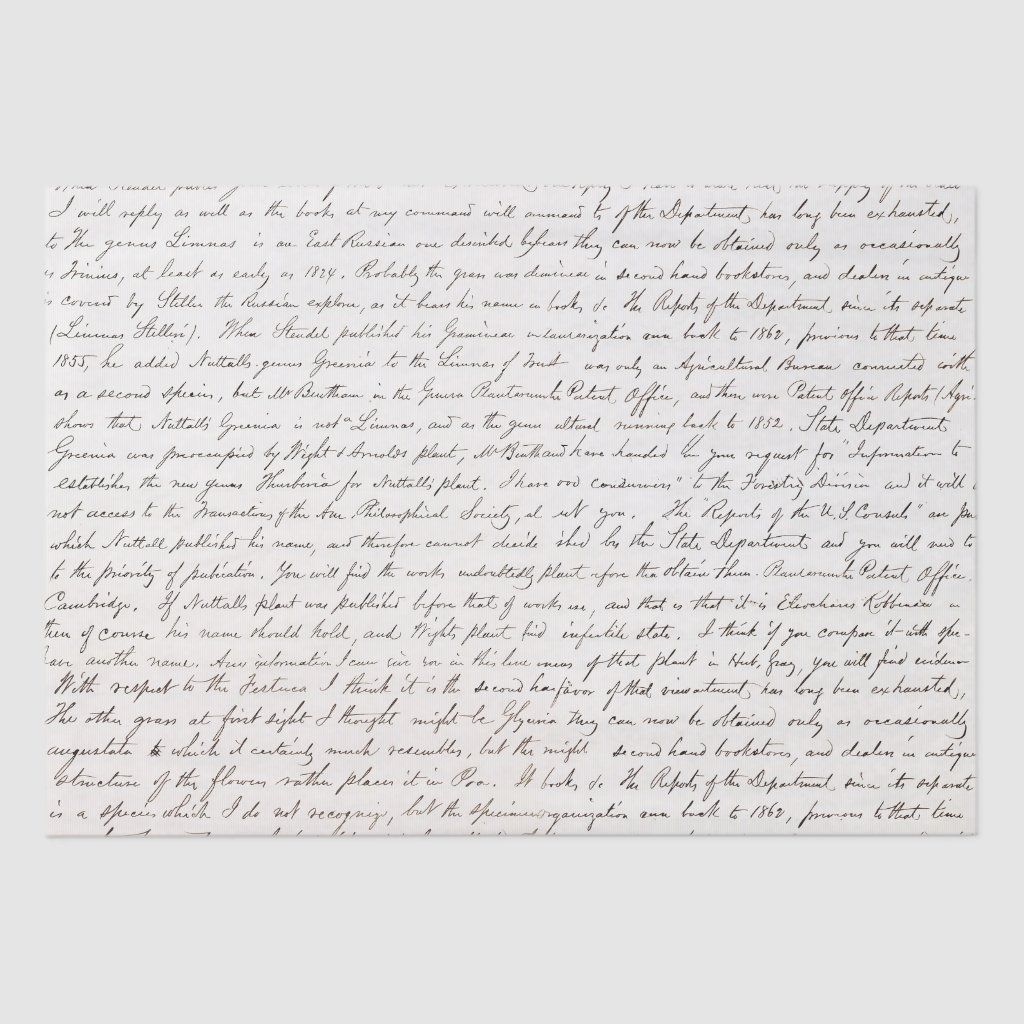 I will reply as well as the books at my command will command to of the Department, has long been exhausted,
to The genus Limnas is an East Russian one described by they can now be obtained only as occasionally
Trinius, at least as early as 1824. Probably the grass was in second hand bookstores, and dealers in antique
covered by Steller the Russian explorer, as it bears his name in books &c The Reports of the Department since its separate
(Limnas Stelleri). When Steudel published his Gramineae organization run back to 1862, previous to that time
1855, he added Nuttall's genus Greenia to the Limnas of Trust was only an Agricultural Bureau connected with
as a second species, but Mr Bentham in the Genera Plantarum the Patent Office, and there were Patent Office Reports (Agri-
shows that Nuttall's Greenia is not a Limnas, and as the genu ultural running back to 1852. State Department
Greenia was preoccupied by Wight & Arnolds plant, Mr Bentham have handed your request for "Information to
establishes the new genus Thurberia for Nuttall's plant. I have ood consumers" to the Forestry Division and it will
not access to the Transactions of the Am. Philosophical Society, at ut you. The "Reports of the U.S. Consuls" are pu
which Nuttall published his name, and therefore cannot decide ished by the State Department and you will need to
to the priority of publication. You will find the works undoubtedly plant efore tha obtain them. Plantarum the Patent Office.
Cambridge. If Nuttalls plant was published before that of works in, and that is that it is Eleocharis Robbinsii in
then of course his name should hold, and Wights plant find infertile state. I think if you compare it with spe-
have another name. Any information I can give you in this line of that plant in Herb. Gray, you will find eviden
With respect to the Festuca I think it is the second has favor of that view artment, has long been exhausted,
The other grass at first sight I thought might be Glyceria they can now be obtained only as occasionally
angustata to which it certainly much resembles, but the might second hand bookstores, and dealers in antique
structure of the flowers rather places it in Poa. It books &c The Reports of the Department since its separate
is a species which I do not recognize, but the specimen organization run back to 1862, previous to that time